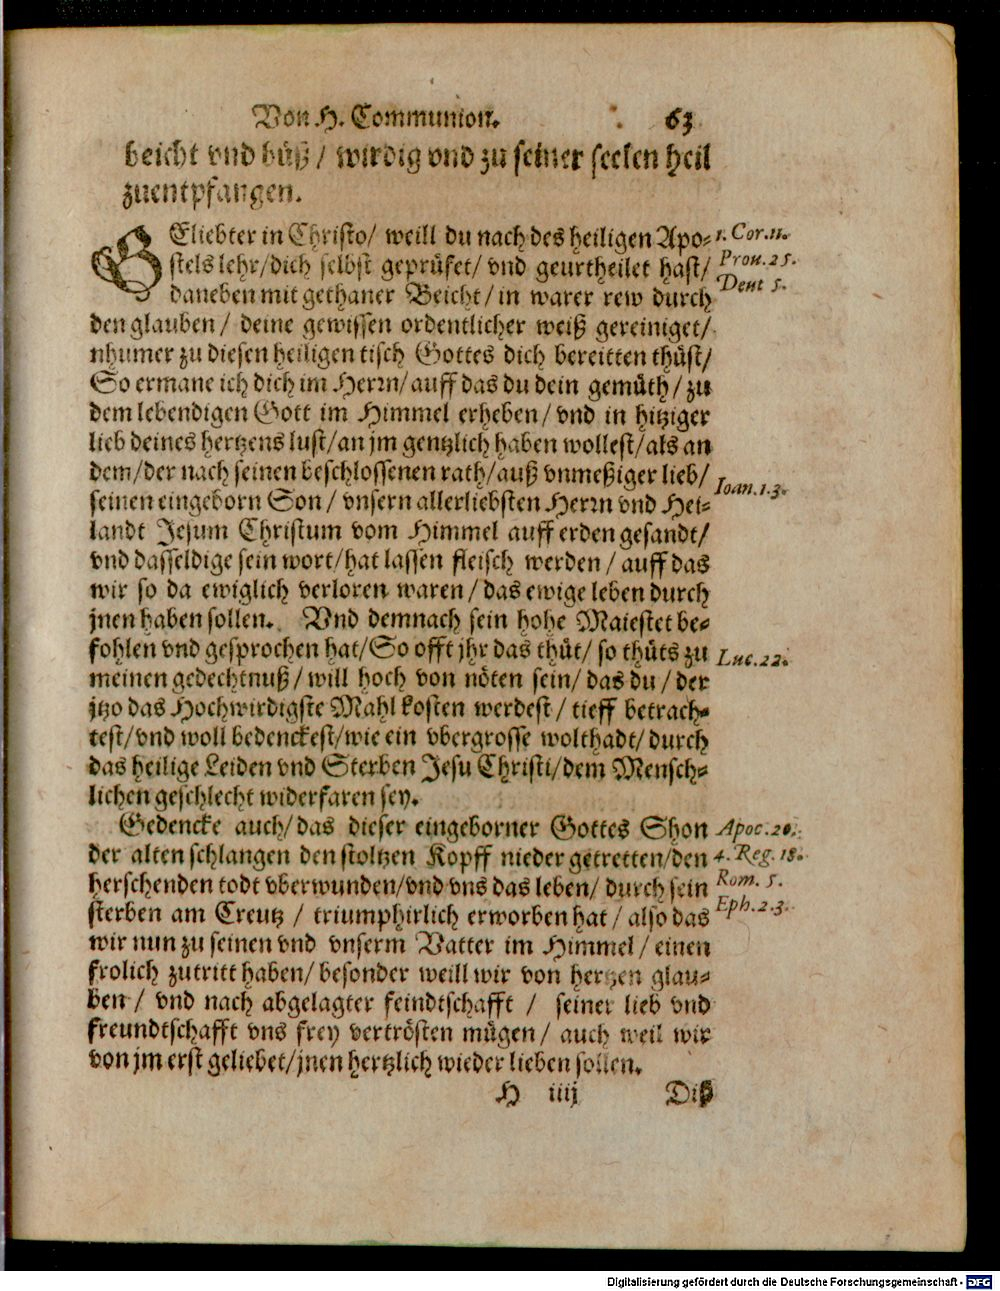 Von H. Communion. 63
beicht vnd büß / wirdig vnd zu seiner seelen heil
zuentpfangen.
GEliebter in Christo/ weill du nach des heiligen Apo- 1. Cor. 11.
stels lehr/dich selbst geprüfet/ vnd geurtheilet hast/ Prou. 25.
daneben mit gethaner Beicht/ in warer rew durch Deut 5.
den glauben / deine gewissen ordentlicher weiß gereiniget/
nhumer zu diesen heiligen tisch Gottes dich bereitten thüst/
So ermane ich dich im Herrn/ auff das du dein gemüth / zu
dem lebendigen Gott im Himmel erheben / vnd in hitziger
lieb deines hertzens lust/an jm gentzlich haben wollest/als an
dem/der nach seinen beschlossenen rath/auß vnmeßiger lieb/
seinen eingeborn Son / vnsern allerliebsten Herrn vnd Hei- Ioan. 1.3.
landt Jesum Christum vom Himmel auff erden gesandt/
vnd dasseldige sein wort/hat lassen fleisch werden / auff das
wir so da ewiglich verloren waren / das ewige leben durch
jnen haben sollen. Vnd demnach sein hohe Maiestet be-
fohlen vnd gesprochen hat/So offt jhr das thüt/ so thüts zu Luc. 22.
meinen gedechtnuß / will hoch von nöten sein/ das du / der
jtzo das Hochwirdigste Mahl kosten werdest / tieff betrach-
test/vnd woll bedenckest/wie ein vbergrosse wolthadt/ durch
das heilige Leiden vnd Sterben Jesu Christi/dem Mensch-
lichen geschlecht widerfaren sey.
Gedencke auch/ das dieser eingeborner Gottes Shon Apoc. 20.
der alten schlangen den stoltzen Kopff nieder getretten/den 4. Reg. 18.
herschenden todt vberwunden/vnd vns das leben/ durch sein Rom. 5.
sterben am Creutz / triumphirlich erworben hat / also das Eph. 2.3.
wir nun zu seinen vnd vnserm Vatter im Himmel / einen
frolich zutritt haben/ besonder weill wir von hertzen glau-
ben / vnd nach abgelagter feindtschafft / seiner lieb vnd
freundtschafft vns frey vertrösten mügen / auch weil wir
von jm erst geliebet/jnen hertzlich wieder lieben sollen.
H iiij Diß
Digitalisierung gefördert durch die Deutsche Forschungsgemeinschaft - DFG